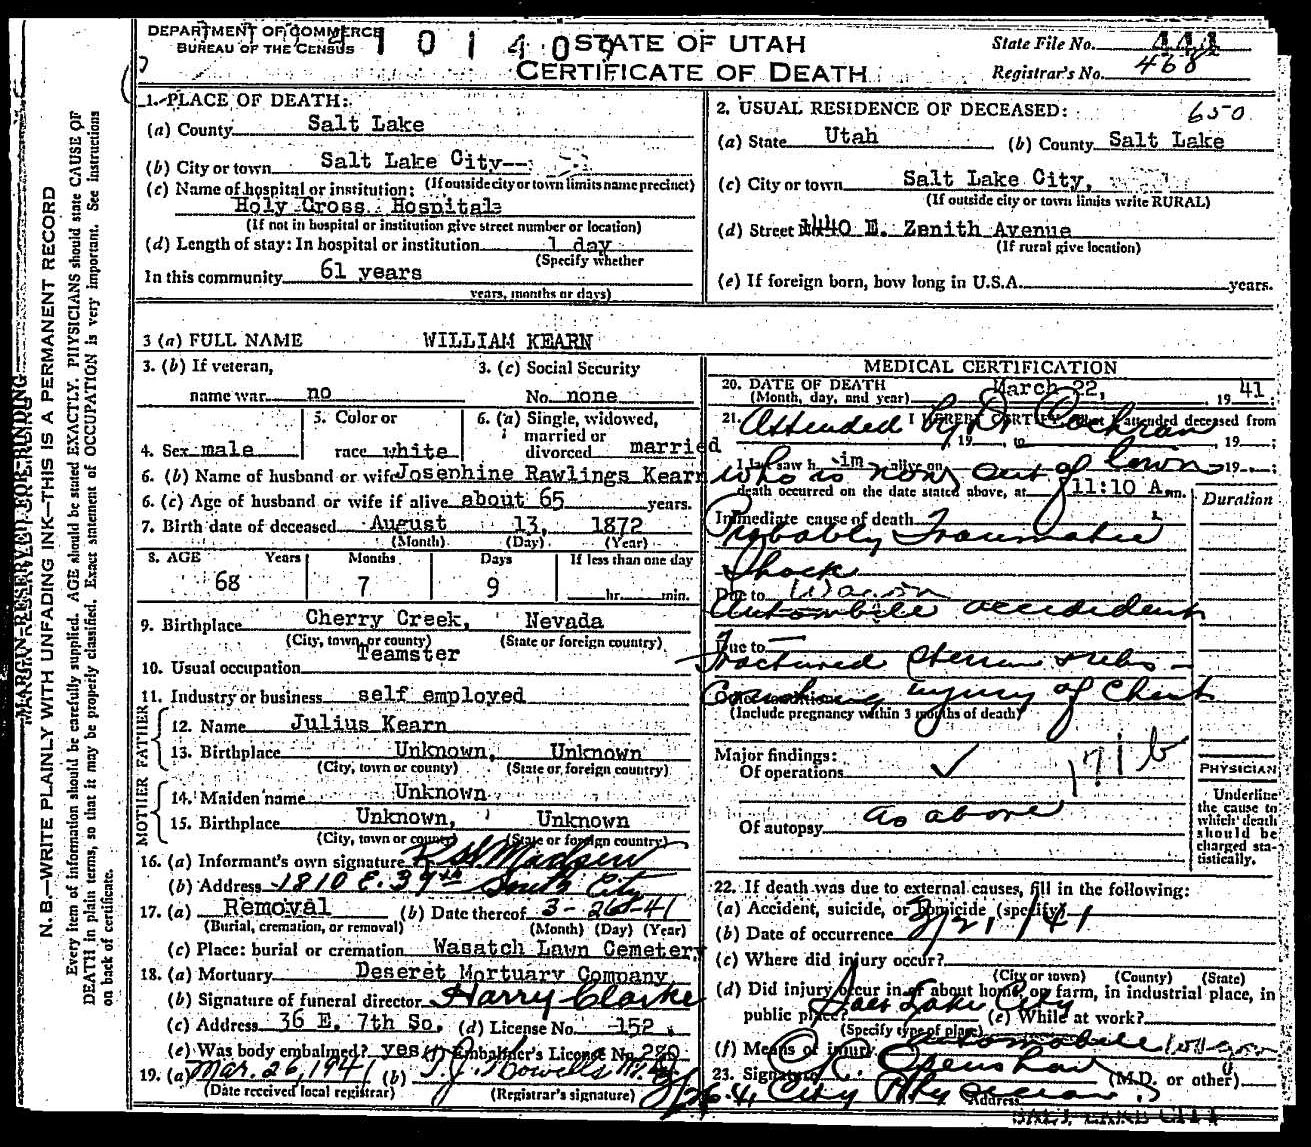 DEPARTMENT OF COMMERCE
BUREAU OF THE CENSUS
STATE OF UTAH
CERTIFICATE OF DEATH
State File No. 441
Registrar's No. 468
1. PLACE OF DEATH:
(a) County Salt Lake
(b) City or town Salt Lake City--
(If outside city or town limits name precinct)
(c) Name of hospital or institution:
Holy Cross Hospital
(If not in hospital or institution give street number or location)
(d) Length of stay: In hospital or institution 1 day
(Specify whether
In this community 61 years
years, months or days)
2. USUAL RESIDENCE OF DECEASED: 650
(a) State Utah (b) County Salt Lake
(c) City or town Salt Lake City,
(If outside city or town limits write RURAL)
(d) Street 1440 E. Zenith Avenue
(If rural give location)
(e) If foreign born, how long in U.S.A. years.
3 (a) FULL NAME WILLIAM KEARN
3. (b) If veteran,
name war no
3. (c) Social Security
No. none
4. Sex male
5. Color or
race white
6. (a) Single, widowed,
married or
divorced married
6. (b) Name of husband or wife Josephine Rawlings Kearn
6. (c) Age of husband or wife if alive about 65 years.
7. Birth date of deceased August 13, 1872
(Month) (Day) (Year)
8. AGE Years Months Days If less than one day
68 7 9 hr. min.
9. Birthplace Cherry Creek, Nevada
(City, town or county) (State or foreign country)
10. Usual occupation Teamster
11. Industry or business self employed
FATHER
12. Name Julius Kearn
13. Birthplace Unknown, Unknown
(City, town or county) (State or foreign country)
MOTHER
14. Maiden name Unknown
15. Birthplace Unknown, Unknown
(City, town or county) (State or foreign country)
16. (a) Informant's own signature R. W. Madsen
(b) Address 1810 E. 39th South City
17. (a) Removal (b) Date thereof 3-26-41
(Burial, cremation, or removal) (Month) (Day) (Year)
(c) Place: burial or cremation Wasatch Lawn Cemetery
18. (a) Mortuary Deseret Mortuary Company
(b) Signature of funeral director Harry Clarke
(c) Address 36 E. 7th So. (d) License No. 152
(e) Was body embalmed? yes (f) Embalmer's License No. 280
19. (a) Mar. 26, 1941 (b) T. J. Howells M.D.
(Date received local registrar) (Registrar's signature)
MEDICAL CERTIFICATION
20. DATE OF DEATH
(Month, day, and year) March 22, 1941
21. I HEREBY CERTIFY that I attended deceased from
Attended by Dr Cochran
19 to 19
I last saw him alive on 19
who is now out of town
death occurred on the date stated above, at 11:10 A.m.
Duration
Immediate cause of death
Probably Traumatic
Shock
Due to Wagon
Automobile accident
Due to
Fractured Sternum & ribs -
Crushing injury of Chest
(Include pregnancy within 3 months of death)
Major findings:
Of operations
171b
Of autopsy as above
PHYSICIAN
Underline
the cause to
which death
should be
charged sta-
tistically.
22. If death was due to external causes, fill in the following:
(a) Accident, suicide, or homicide (specify)
(b) Date of occurrence 3/21/41
(c) Where did injury occur?
(City or town) (County) (State)
(d) Did injury occur in or about home, on farm, in industrial place, in
public place? Salt Lake City (e) While at work?
(Specify type of place)
(f) Means of injury automobile wagon
23. Signature O.R. Openshaw (M.D. or other)
3/26-41 City Physician
Address
SALT LAKE CITY
MARGIN RESERVED FOR BINDING
N. B.—WRITE PLAINLY WITH UNFADING INK—THIS IS A PERMANENT RECORD
Every item of information should be carefully supplied. AGE should be stated EXACTLY. PHYSICIANS should state CAUSE OF
DEATH in plain terms, so that it may be properly classified. Exact statement of OCCUPATION is very important. See instructions
on back of certificate.